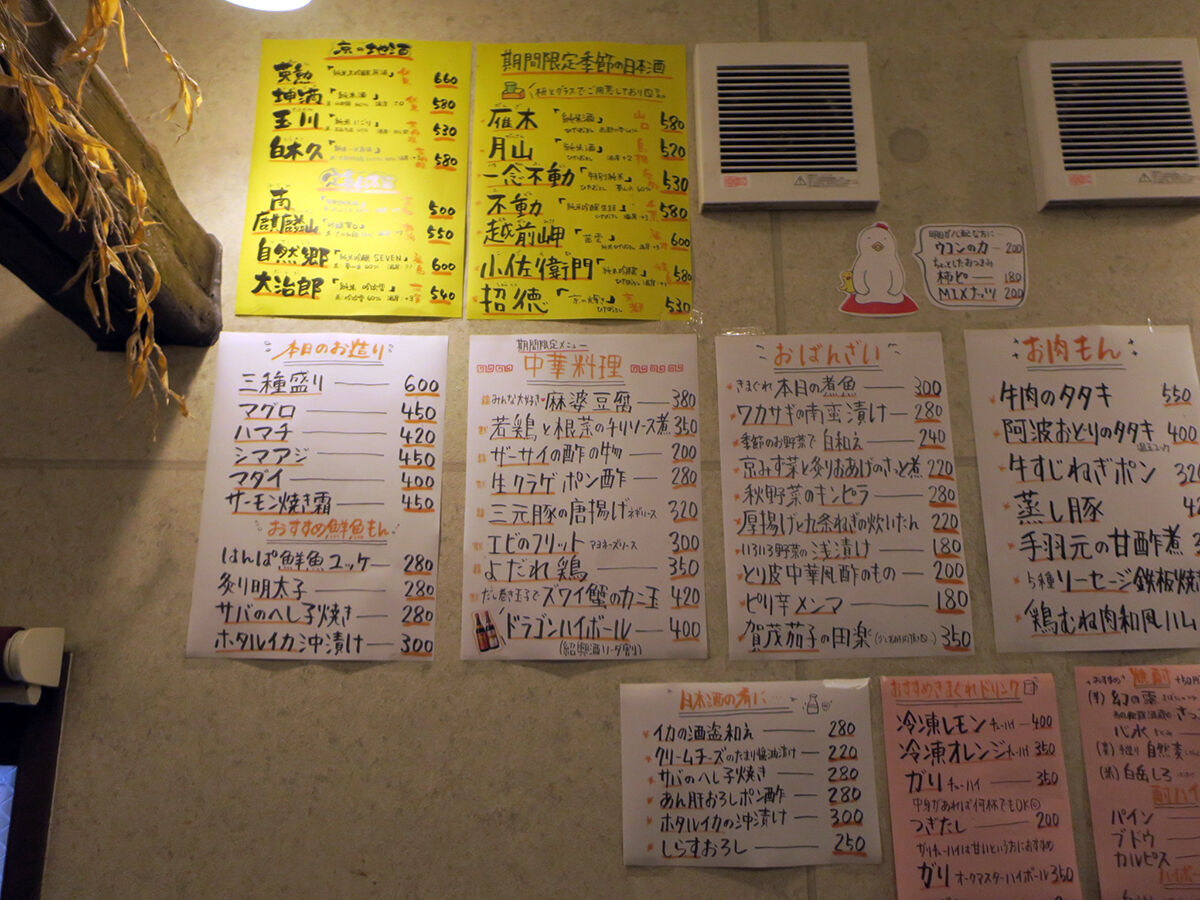 京の地酒
英勲 「純米大吟醸原酒」 660
坤滴 「純米酒」 580
玉川 「純米にごり」 530
白木久 580
南 500
麒麟山 550
自然郷 「純米吟醸 SEVEN」 600
大治郎 540
期間限定季節の日本酒
枡とグラスでご用意しております。
雁木 「純米酒」 山口 580
ひやおろし
月山 「純米酒」 520
ひやおろし
一念不動 「特別純米」 530
ひやおろし
不動 「純米吟醸生詰」 580
ひやおろし
越前岬 600
小佐衛門 「純米吟醸」 580
招徳 530
ひやおろし
明日が心配な方に
ウコンの力 200
ちょっとしたおつまみ
柿ピー 180
MIXナッツ 200
本日のお造り
三種盛り 600
マグロ 450
ハマチ 420
シマアジ 450
マダイ 400
サーモン焼き霜 450
おすすめ鮮魚もん
はんぱ鮮魚ユッケ 280
炙り明太子 280
サバのへしこ焼き 280
ホタルイカ沖漬け 300
期間限定メニュー
中華料理
みんな大好き♥麻婆豆腐 380
若鶏と根菜のチリソース煮 350
ザーサイの酢の物 200
生クラゲポン酢 280
三元豚の唐揚げネギソース 320
エビのフリットマヨネーズソース 300
よだれ鶏 350
だし巻き玉子でズワイ蟹のカニ玉 420
ドラゴンハイボール 400
(紹興酒ソーダ割り)
おばんざい
きまぐれ本日の煮魚 300
ワカサギの南蛮漬け 280
季節のお野菜で白和え 240
京みず菜と炙りおあげのさっと煮 220
秋野菜のキンピラ 280
厚揚げと九条ねぎの炊いたん 220
いろいろ野菜の浅漬け 180
とり皮中華風酢のもの 200
ピリ辛メンマ 180
賀茂茄子の田楽 350
お肉もん
牛肉のタタキ 550
阿波おどりのタタキ 400
牛すじねぎポン
蒸し豚
手羽元の甘酢煮
5種ソーセージ鉄板焼
鶏むね肉和風ハム
日本酒の肴に…
イカの酒盗和え 280
クリームチーズのたまり醤油漬け 220
サバのへしこ焼き 280
あん肝おろしポン酢 280
ホタルイカの沖漬け 300
しらすおろし 250
おすすめきまぐれドリンク
冷凍レモンチューハイ 400
冷凍オレンジチューハイ 350
ガリチューハイ 350
中身があれば何杯でもOK☺
つぎたし 200
ガリチューハイは甘いという方におすすめ
ガリオークマスターハイボール 350
おすすめ 焼酎 +50円
(芋) 幻の露
心水
(麦) 手造り 自然麦
(米) 白岳しろ
酎ハイ
パイン
ブドウ
カルピス
ハイボー